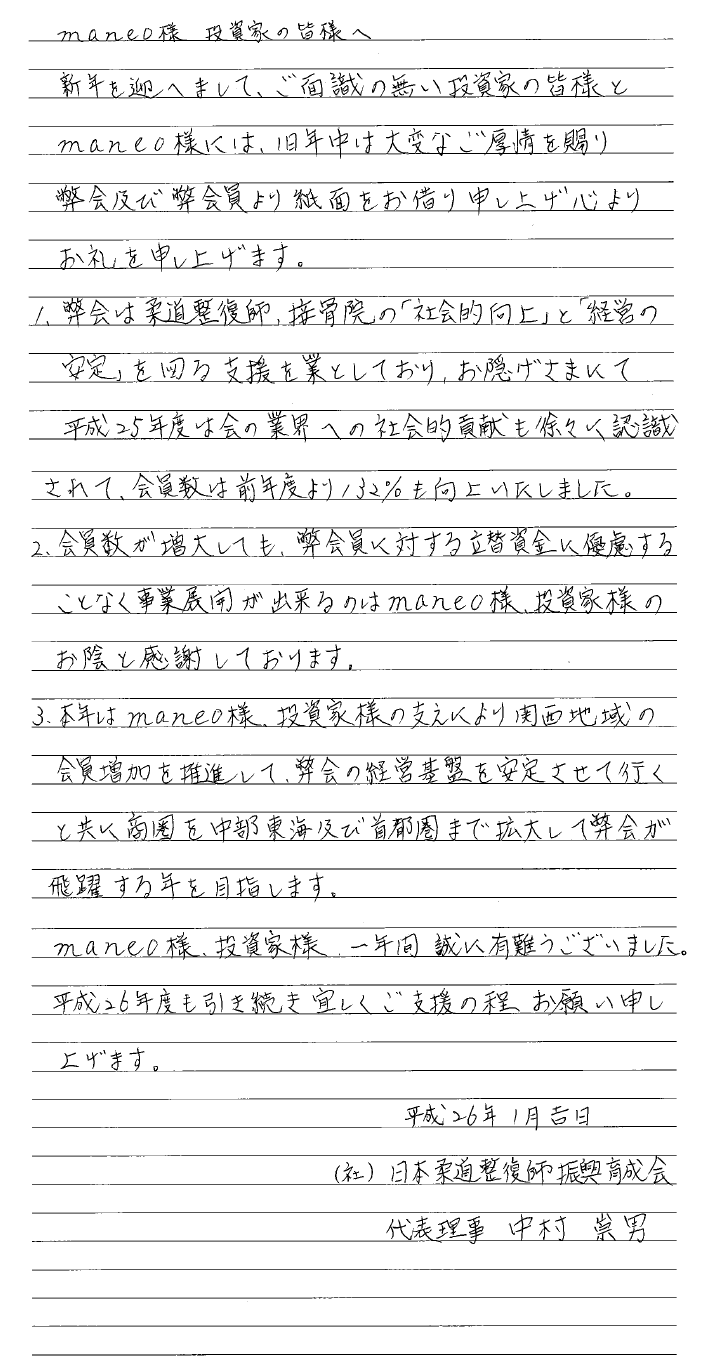 maneo様 投資家の皆様へ
新年を迎へまして、ご面識の無い投資家の皆様と
maneo様には、旧年中は大変なご厚情を賜り
弊会及び弊会員より紙面をお借り申し上げ心より
お礼を申し上げます。
1. 弊会は柔道整復師,接骨院の「社会的向上」と「経営の
安定」を図る支援を業としており,お隠げさまにて
平成25年度は会の業界への社会的貢献も徐々に認識
されて、会員数は前年度より132%も向上いたしました。
2. 会員数が増大しても、弊会員に対する立替資金に優慮する
ことなく事業展開が出来るのはmaneo様、投資家様の
お陰と感謝しております。
3. 本年はmaneo様、投資家様の支えにより関西地域の
会員増加を推進して、弊会の経営基盤を安定させて行く
と共に商圏を中部東海及び首都圏まで拡大して弊会が
飛躍する年を目指します。
maneo様、投資家様 一年間 誠に有難うございました。
平成26年度も引き続き宜しくご支援の程、お願い申し
上げます。
平成26年1月吉日
(社)日本柔道整復師振興育成会
代表理事 中村 崇男